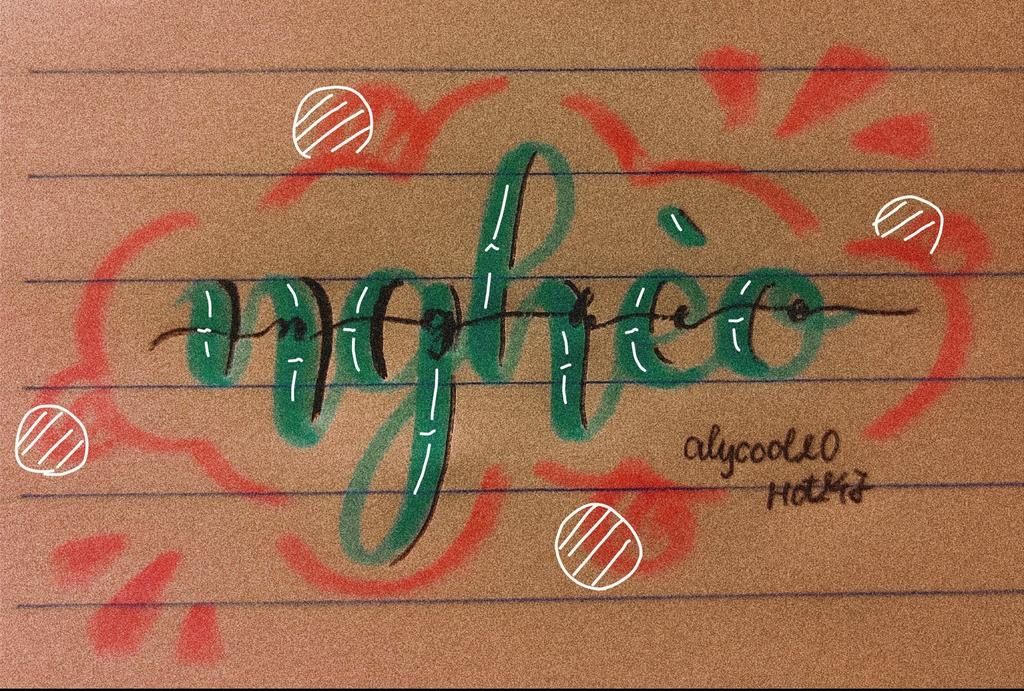 nghèo
ngheo
alycooleo
Hot147